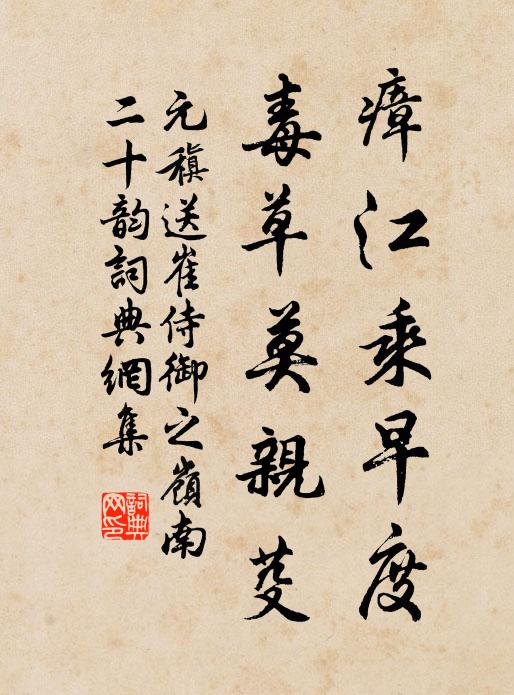 瘴江乘早度
毒草莫親芟
元稹送崔侍御之嶺南
二十韵詞典網集
詞典网印